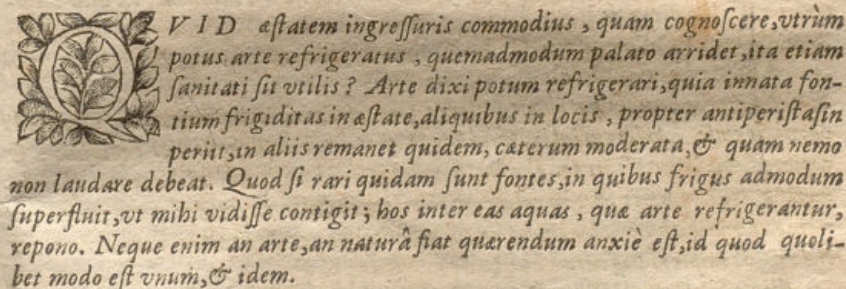 QVID æſtatem ingreſſuris commodius, quam cognoſcere, vtrùm
potus arte refrigeratus, quemadmodum palato arridet, ita etiam
ſanitati ſit vtilis? Arte dixi potum refrigerari, quia innata fon-
tium frigiditas in æſtate, aliquibus in locis, propter antiperiſtaſin
periit, in aliis remanet quidem, cæterum moderata, & quam nemo
non laudare debeat. Quod ſi rari quidam ſunt fontes, in quibus frigus admodum
ſuperfluit, vt mihi vidiſſe contigit; hos inter eas aquas, quæ arte refrigerantur,
repono. Neque enim an arte, an naturâ fiat quærendum anxiè eſt, id quod quoli-
bet modo eſt vnum, & idem.